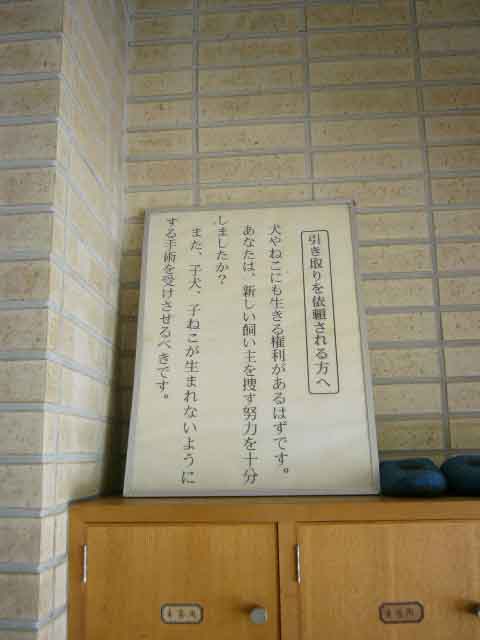 引き取りを依頼される方へ
犬やねこにも生きる権利があるはずです。
あなたは、新しい飼い主を捜す努力を十分
しましたか?
また、子犬、子ねこが生まれないように
する手術を受けさせるべきです。